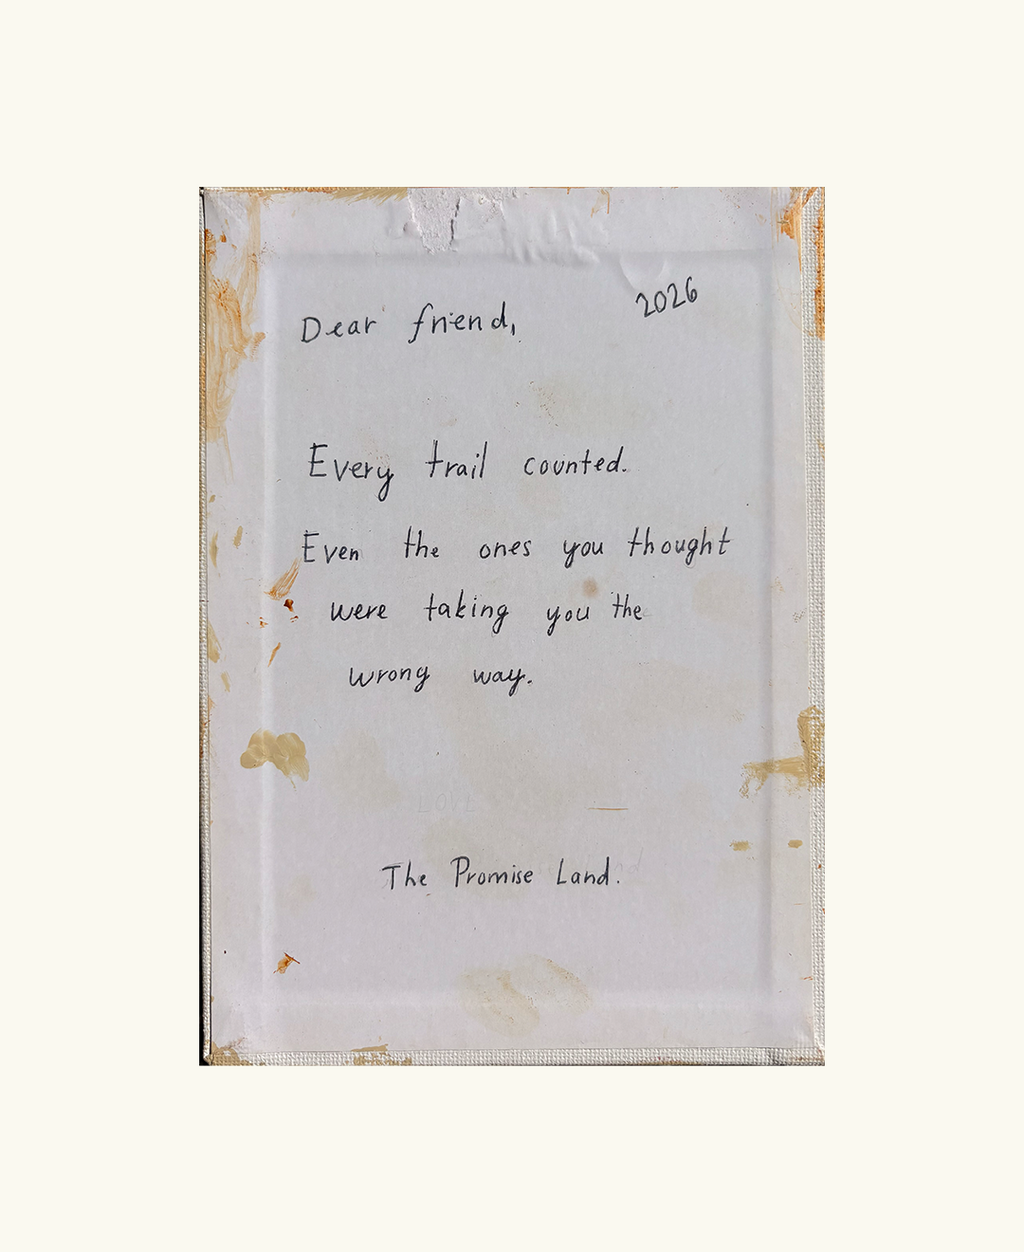 2026
Dear friend,
Every trail counted.
Even the ones you thought
were taking you the
wrong way.
LOVE
The Promise Land.